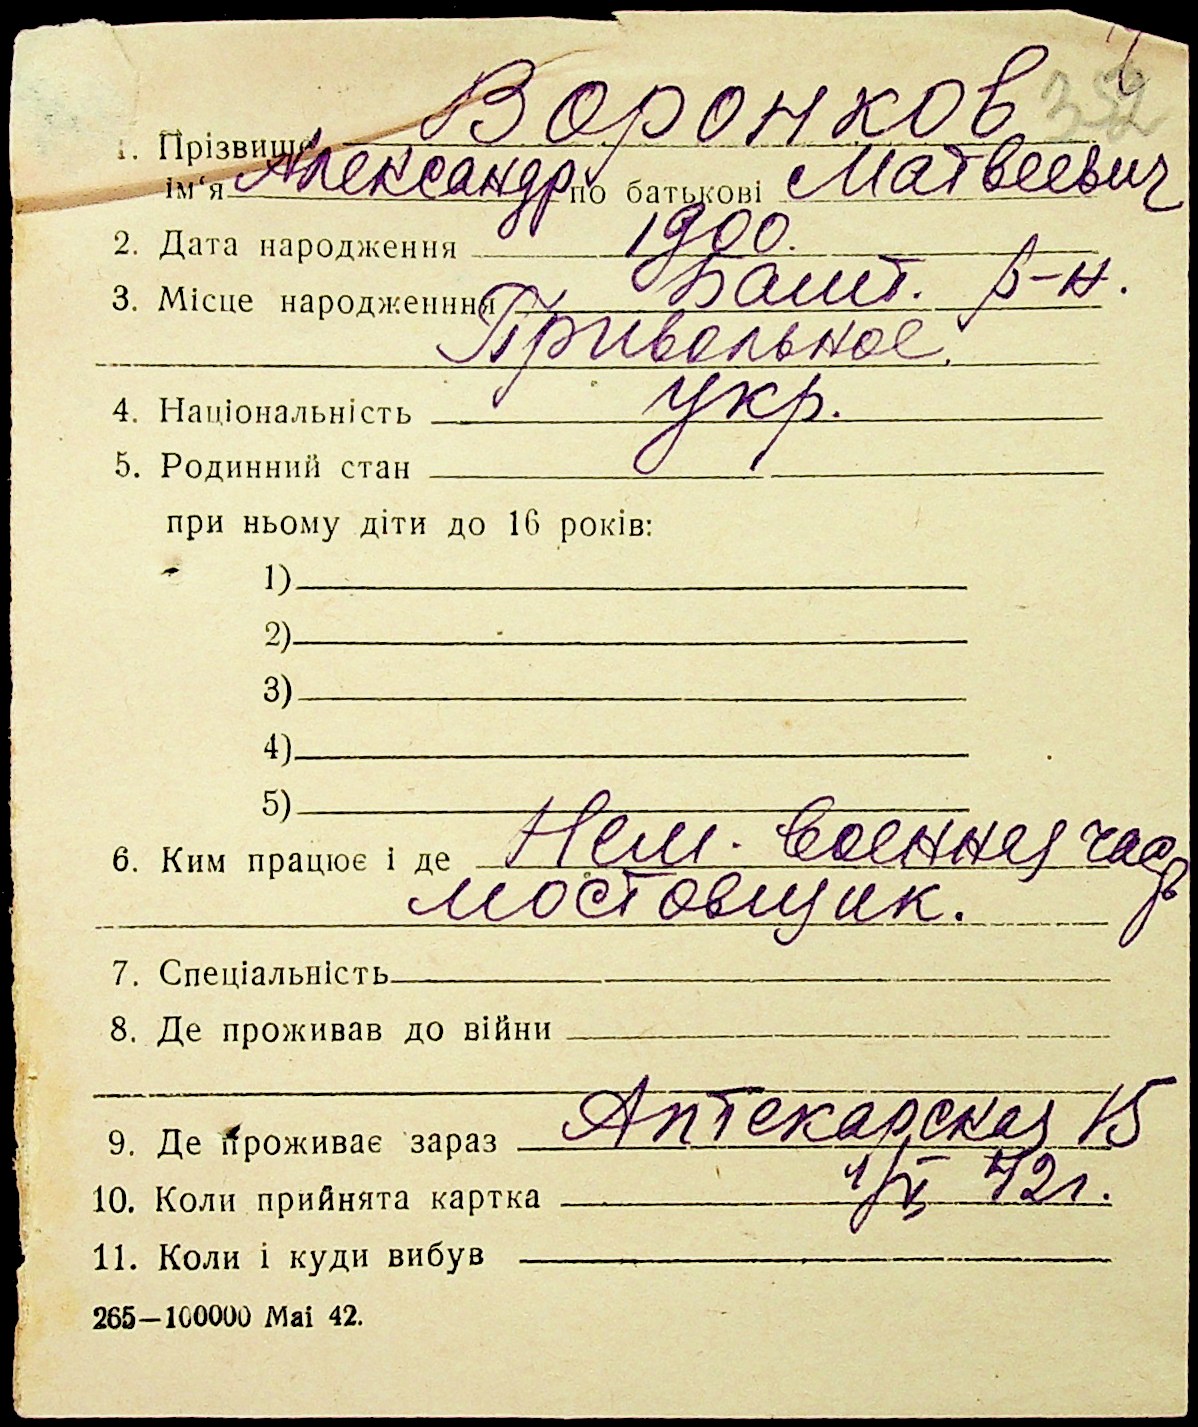 Воронков 352
1. Прізвище
ім‘я Александр по батькові Матвеевич
2. Дата народження 1900.
3. Місце народженння Башт. р-н.
Привольное.
4. Національність укр.
5. Родинний стан
при ньому діти до 16 років:
1)
2)
3)
4)
5)
6. Ким працює і де Нем. военная часть
мостовщик.
7. Спеціальність
8. Де проживав до війни
9. Де проживає зараз Аптекарская 15
10. Коли прийнята картка 42г.
11. Коли і куди вибув
265—100000 Mai 42.